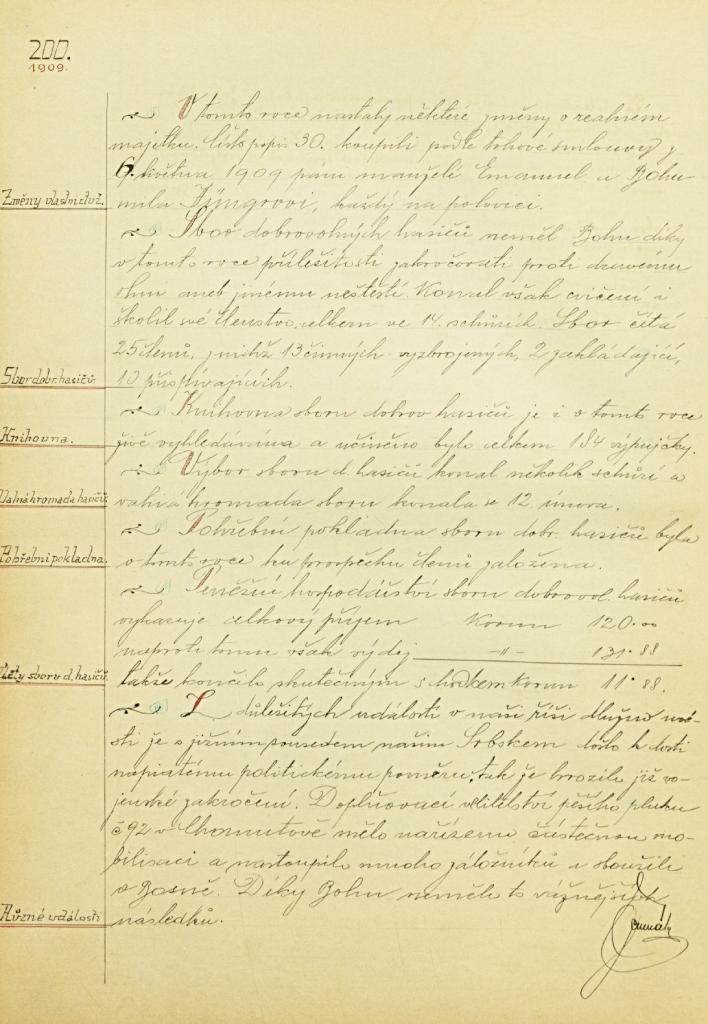 200.
1909.
V tomto roce nastaly některé změny v realném
majetku. Číslo popis 30. koupili podle trhové smlouvy z
6. května 1909 páni manželé Emanuel a Bohu-
Změny vlastnictví.
mila Jüngrovi, každý na polovici.
Sbor dobrovolných hasičů neměl Bohu díky
v tomto roce příležitosti zakročovati proti dravému
ohni aneb jinému neštěstí. Konal však cvičení i
školil své členstvo, celkem ve 14. schůzích. Sbor čítá
25 členů, z nichž 13 činných vyzbrojených, 2 zakládající,
Sbor dobr. hasičů.
10 přispívajících.
Knihovna sboru dobrov hasičů je i v tomto roce
Knihovna.
živě vyhledávána a učiněno bylo celkem 184 výpujčky.
Výbor sboru d. hasičů konal několik schůzí a
Valná hromada hasičů
valná hromada sboru konala se 12. února.
Pohřební pokladna sboru dobr. hasičů byla
Pohřební pokladna.
v tomto roce ku prospěchu členů založena.
Peněžní hospodářství sboru dobrovol. hasičů
vykazuje celkový příjem Korun 120.00
naproti tomu však výdej -"- 131.88
Účty sboru d. hasičů.
takže končilo skutečným schodkem Korun 11.88.
Z důležitých událostí v naší říši dlužno uvé-
sti je s jižním sousedem naším Srbskem došlo k dosti
napiatému politickému poměru, tak že hrozilo již vo-
jenské zakročení. Doplňovací velitelství pěšího pluku
č 92 v Chomutově mělo nařízenu částečnou mo-
bilisaci a nastoupilo mnoho záložníků a sloužili
v Bosně. Díky Bohu neměla to vážnějších
Různé události
následků.